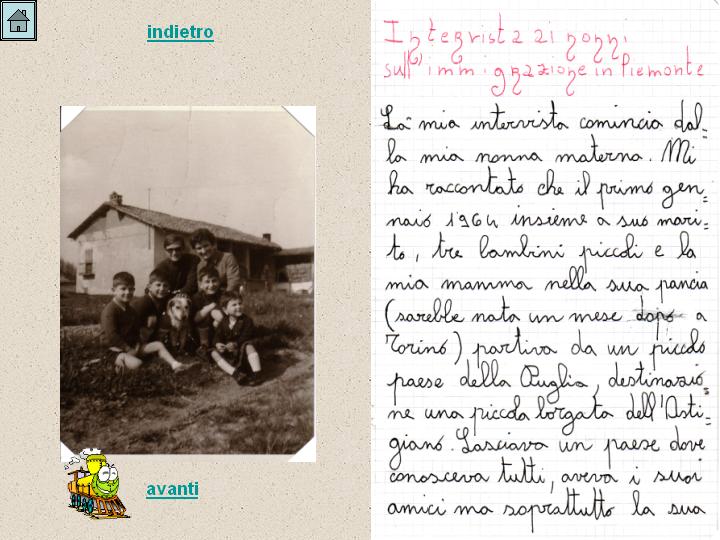 indietro
avanti
Intervista ai nonni
sull'immigrazione in Piemonte
La mia intervista comincia dal=
la mia nonna materna. Mi
ha raccontato che il primo gen=
naio 1964 insieme a suo mari=
to, tre bambini piccoli e la
mia mamma nella sua pancia
(sarebbe nata un mese dopo a
Torino) partiva da un piccolo
paese della Puglia, destinazio=
ne una piccola borgata dell'Asti=
giano. Lasciava un paese dove
conosceva tutti, aveva i suoi
amici ma soprattutto la sua